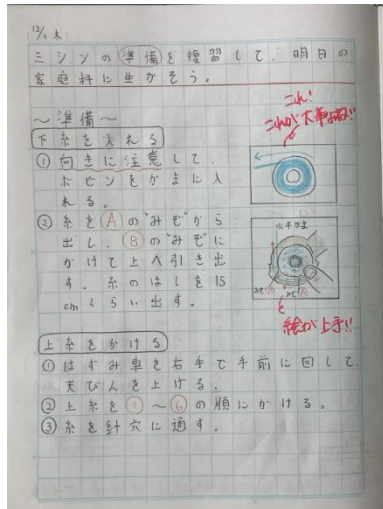 12/1 木
ミシンの準備を復習して、明日の
家庭科に生かそう。
～準備～
下糸を入れる
① 向きに注意して、
ボビンをかまに入
れる。
これ!
これが大事だね!!
② 糸をⒶの"みぞ"から
出し、Ⓑの"みぞ"に
かけて上へ引き出
す。糸のはしを15
cmくらい出す。
水平がま
みぞⒶ
みぞ
絵が上手!!
上糸をかける
① はずみ車を右手で手前に回して、
天びんを上げる。
② 上糸を①～⑥の順にかける。
③ 糸を針穴に通す。